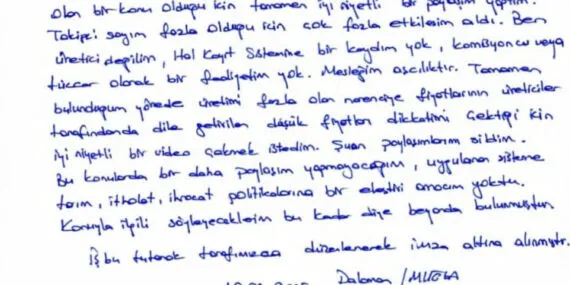 olan bir konu olduğu için tamamen iyi niyetli bir paylaşım yaptım.
Takipçi sayım fazla olduğu için çok fazla etkileşim aldı. Ben
üretici değilim, Hal Kayıt Sistemine bir kaydım yok, komisyoncu veya
tüccar olarak bir faaliyetim yok. Mesleğim aşçılıktır. Tamamen
bulunduğum yörede üretimi fazla olan narenciye fiyatlarının üreticiler
tarafındanda dile getirilen düşük fiyatları dikkatimi çektiği için
iyi niyetli bir video çekmek istedim. Şuan paylaşımlarımı sildim.
Bu konularda bir daha paylaşım yapmayacağım, uygulanan sisteme
tarım, ithalat, ihracat politikalarına bir eleştiri amacım yoktu.
Konuyla ilgili söyleyeceklerim bu kadar diye beyanda bulunmuştur.
İş bu tutanak tarafımızca düzenlenerek imza altına alınmıştır.
Dalaman / MUĞLA